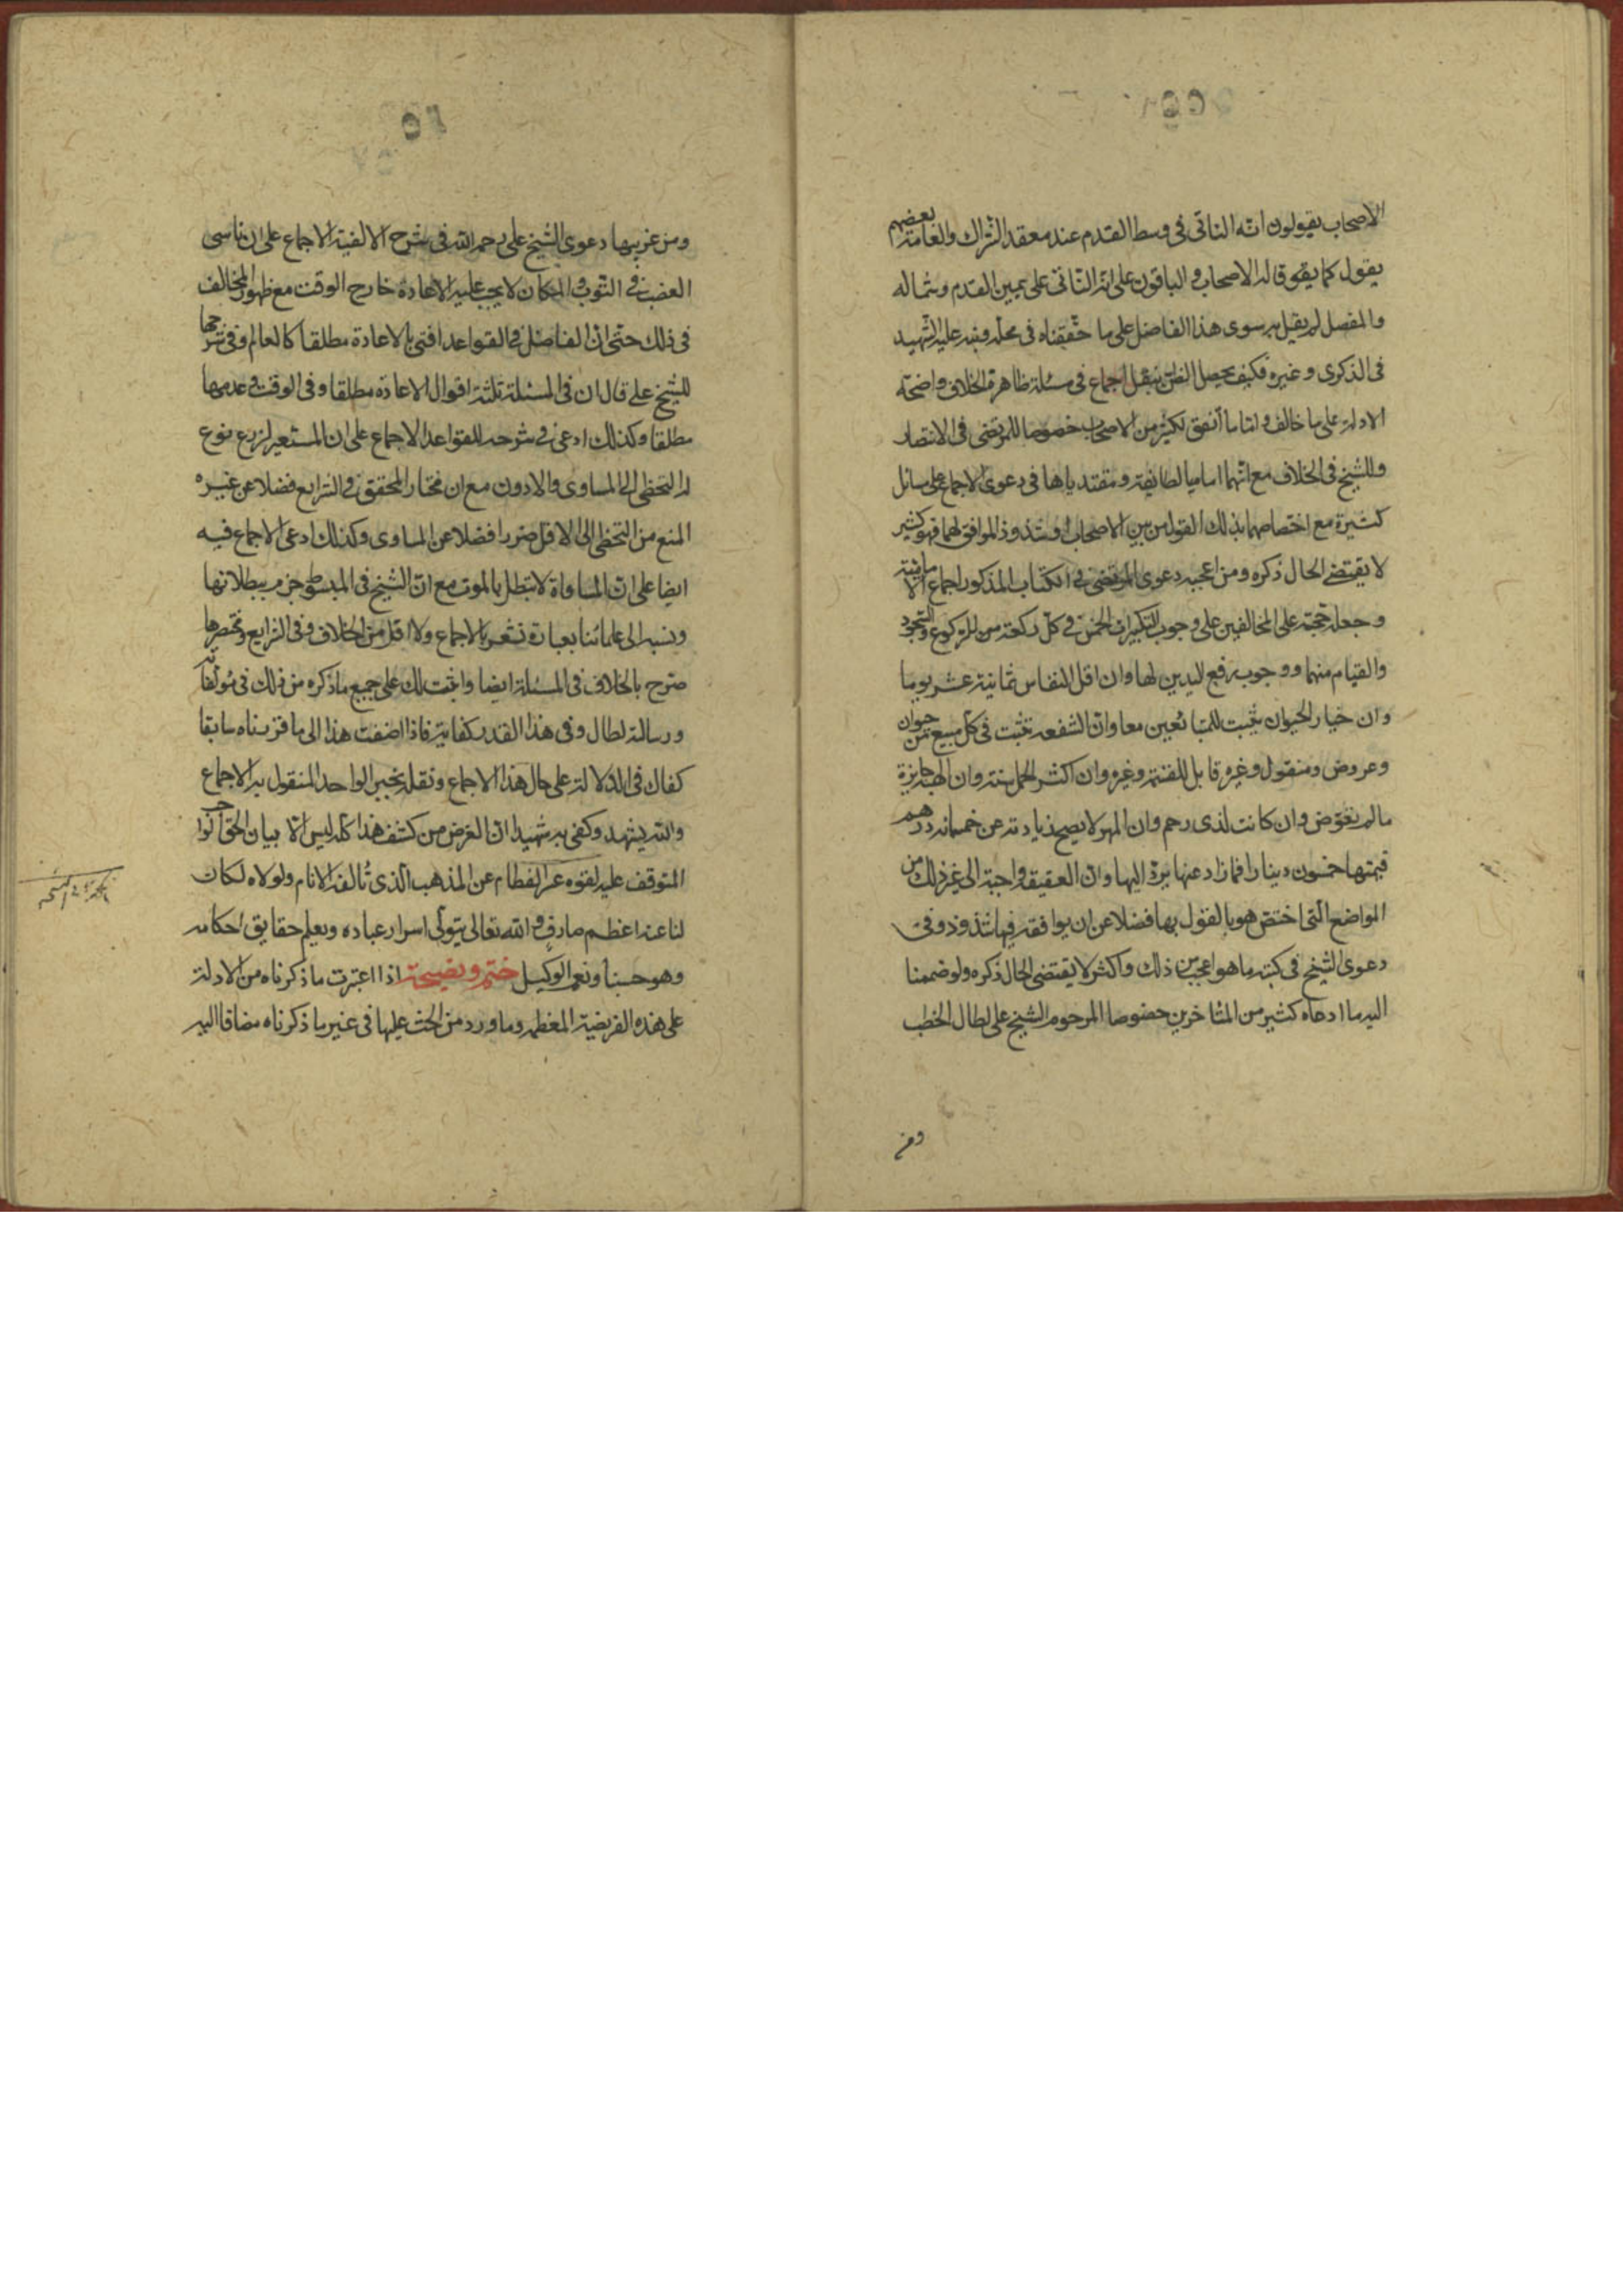 الاصحاب يقولون انّه الناتى فى وسط القدم عند معقد الشراك والعامة بعضهم
يقول كما يقوله الاصحاب و الباقون على انه الناتى على يمين القدم وشماله
والمفصل لم يقل به سوى هذا الفاضل على ما حققناه فى محله ونبه عليه الشهيد
فى الذكرى وغيره فكيف يحصل الظن بنقل اجماع فى مسئلة ظاهرة الخلاف واضحة
الادلة على ما خالف و اما ما اتفق لكثير من الاصحاب خصوصا للمرتضى فى الانتصار
وللشيخ فى الخلاف مع انهما اماما الطائفة ومقتدياها فى دعوى الاجماع على مسائل
كثيرة مع اختصاصهما بذلك القول من بين الاصحاب او شذوذ الموافق لهما فهو كثير
لا يقتضى الحال ذكره ومن اعجبه دعوى المرتضى فى الكتاب المذكور اجماع الامامية
وجعله حجة على المخالفين على وجوب التكبيرات الخمس فى كل ركعة من للركوع والسجود
والقيام منهما ووجوب رفع اليدين لها وان اقل النفاس ثمانية عشر يوما
وان خيار الحيوان يثبت للمتبائعين معا وان الشفعه تثبت فى كل مبيع من حيوان
وعروض ومنقول وغيره قابل للقسمة وغيره وان اكثر الحمل سنة وان الهبة جايزة
ما لم يعوض وان كانت لذى رحم وان المهر لا يصح زيادته عن خمسمائه درهم
قيمتها خمسون دينارا فما زاد عنها يرد اليها وان العقيقة واجبة الى غير ذلك من
المواضع التى اختص هو بالقول بها فضلا عن ان يوافقه فيها شذوذ وفى
دعوى الشيخ فى كتبه ما هو اعجب من ذلك واكثر لا يقتضى الحال ذكره ولو ضممنا
اليه ما ادعاه كثير من المتاخرين خصوصا المرحوم الشيخ على لطال الخطب
ومن
ومن غريبها دعوى الشيخ على رحمه الله فى شرح الالفية الاجماع على ان ناسى
الغصب فى الثوب و المكان لا يجب عليه الاعادة خارج الوقت مع ظهور المخالف
فى ذلك حتى ان الفاضل فى القواعد افتى بالاعادة مطلقا كالعالم وفى شرحها
للشيخ على قال ان فى المسئلة ثلثة اقوال الاعادة مطلقا وفى الوقت و عدمها
مطلقا وكذلك ادعى فى شرحه للقواعد الاجماع على ان المستعير لزرع نوع
له التخطى الى المساوى والادون مع ان مختار المحقق فى الشرايع فضلا عن غيره
المنع من التخطى الى الاقل ضررا فضلا عن المساوى وكذلك ادعى الاجماع فيه
ايضا على ان المساقاة لا تبطل بالموت مع ان الشيخ فى المبسوط جزم ببطلانها
ونسبه الى علمائنا بعبارة تشعر بالاجماع ولا اقل من الخلاف وفى الشرايع ومختصرها
صرح بالخلاف فى المسئلة ايضا ولو تتبعت على جميع ما ذكره من ذلك فى مؤلفاته
ورسالته لطال وفى هذا القدر كفاية فاذا اضفت هذا الى ما قررناه سابقا
كفاك فى الدلالة على حال هذا الاجماع ونقله بخبر الواحد المنقول به الاجماع
والله يشهد وكفى به شهيدا ان الغرض من كشف هذا كله ليس الا بيان الحق الواجب
المتوقف عليه لقوة عسر الفطام عن المذهب الذى تألفه الانام ولولاه لكان
لنا عنه اعظم صارف و الله تعالى يتولى اسرار عباده ويعلم حقايق احكامه
وهو حسبنا ونعم الوكيل ختم ونصيحة اذا اعتبرت ما ذكرناه من الادلة
على هذه الفريضة المعظمة وما ورد من الحث عليها فى غير ما ذكرناه مضافا اليه